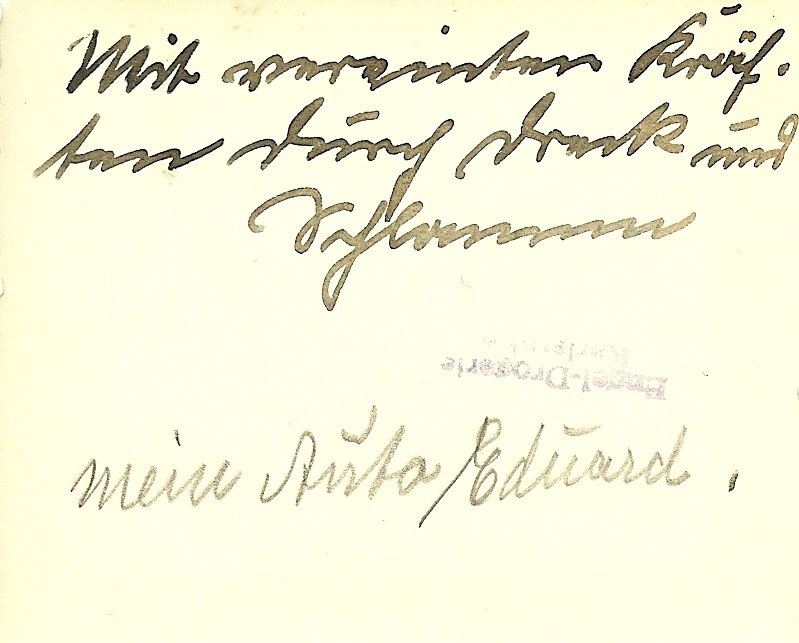 Mit vereinten Kräf-
ten durch Dreck und
Schlamm
Engel-Drogerie
mein Auto / Eduard.